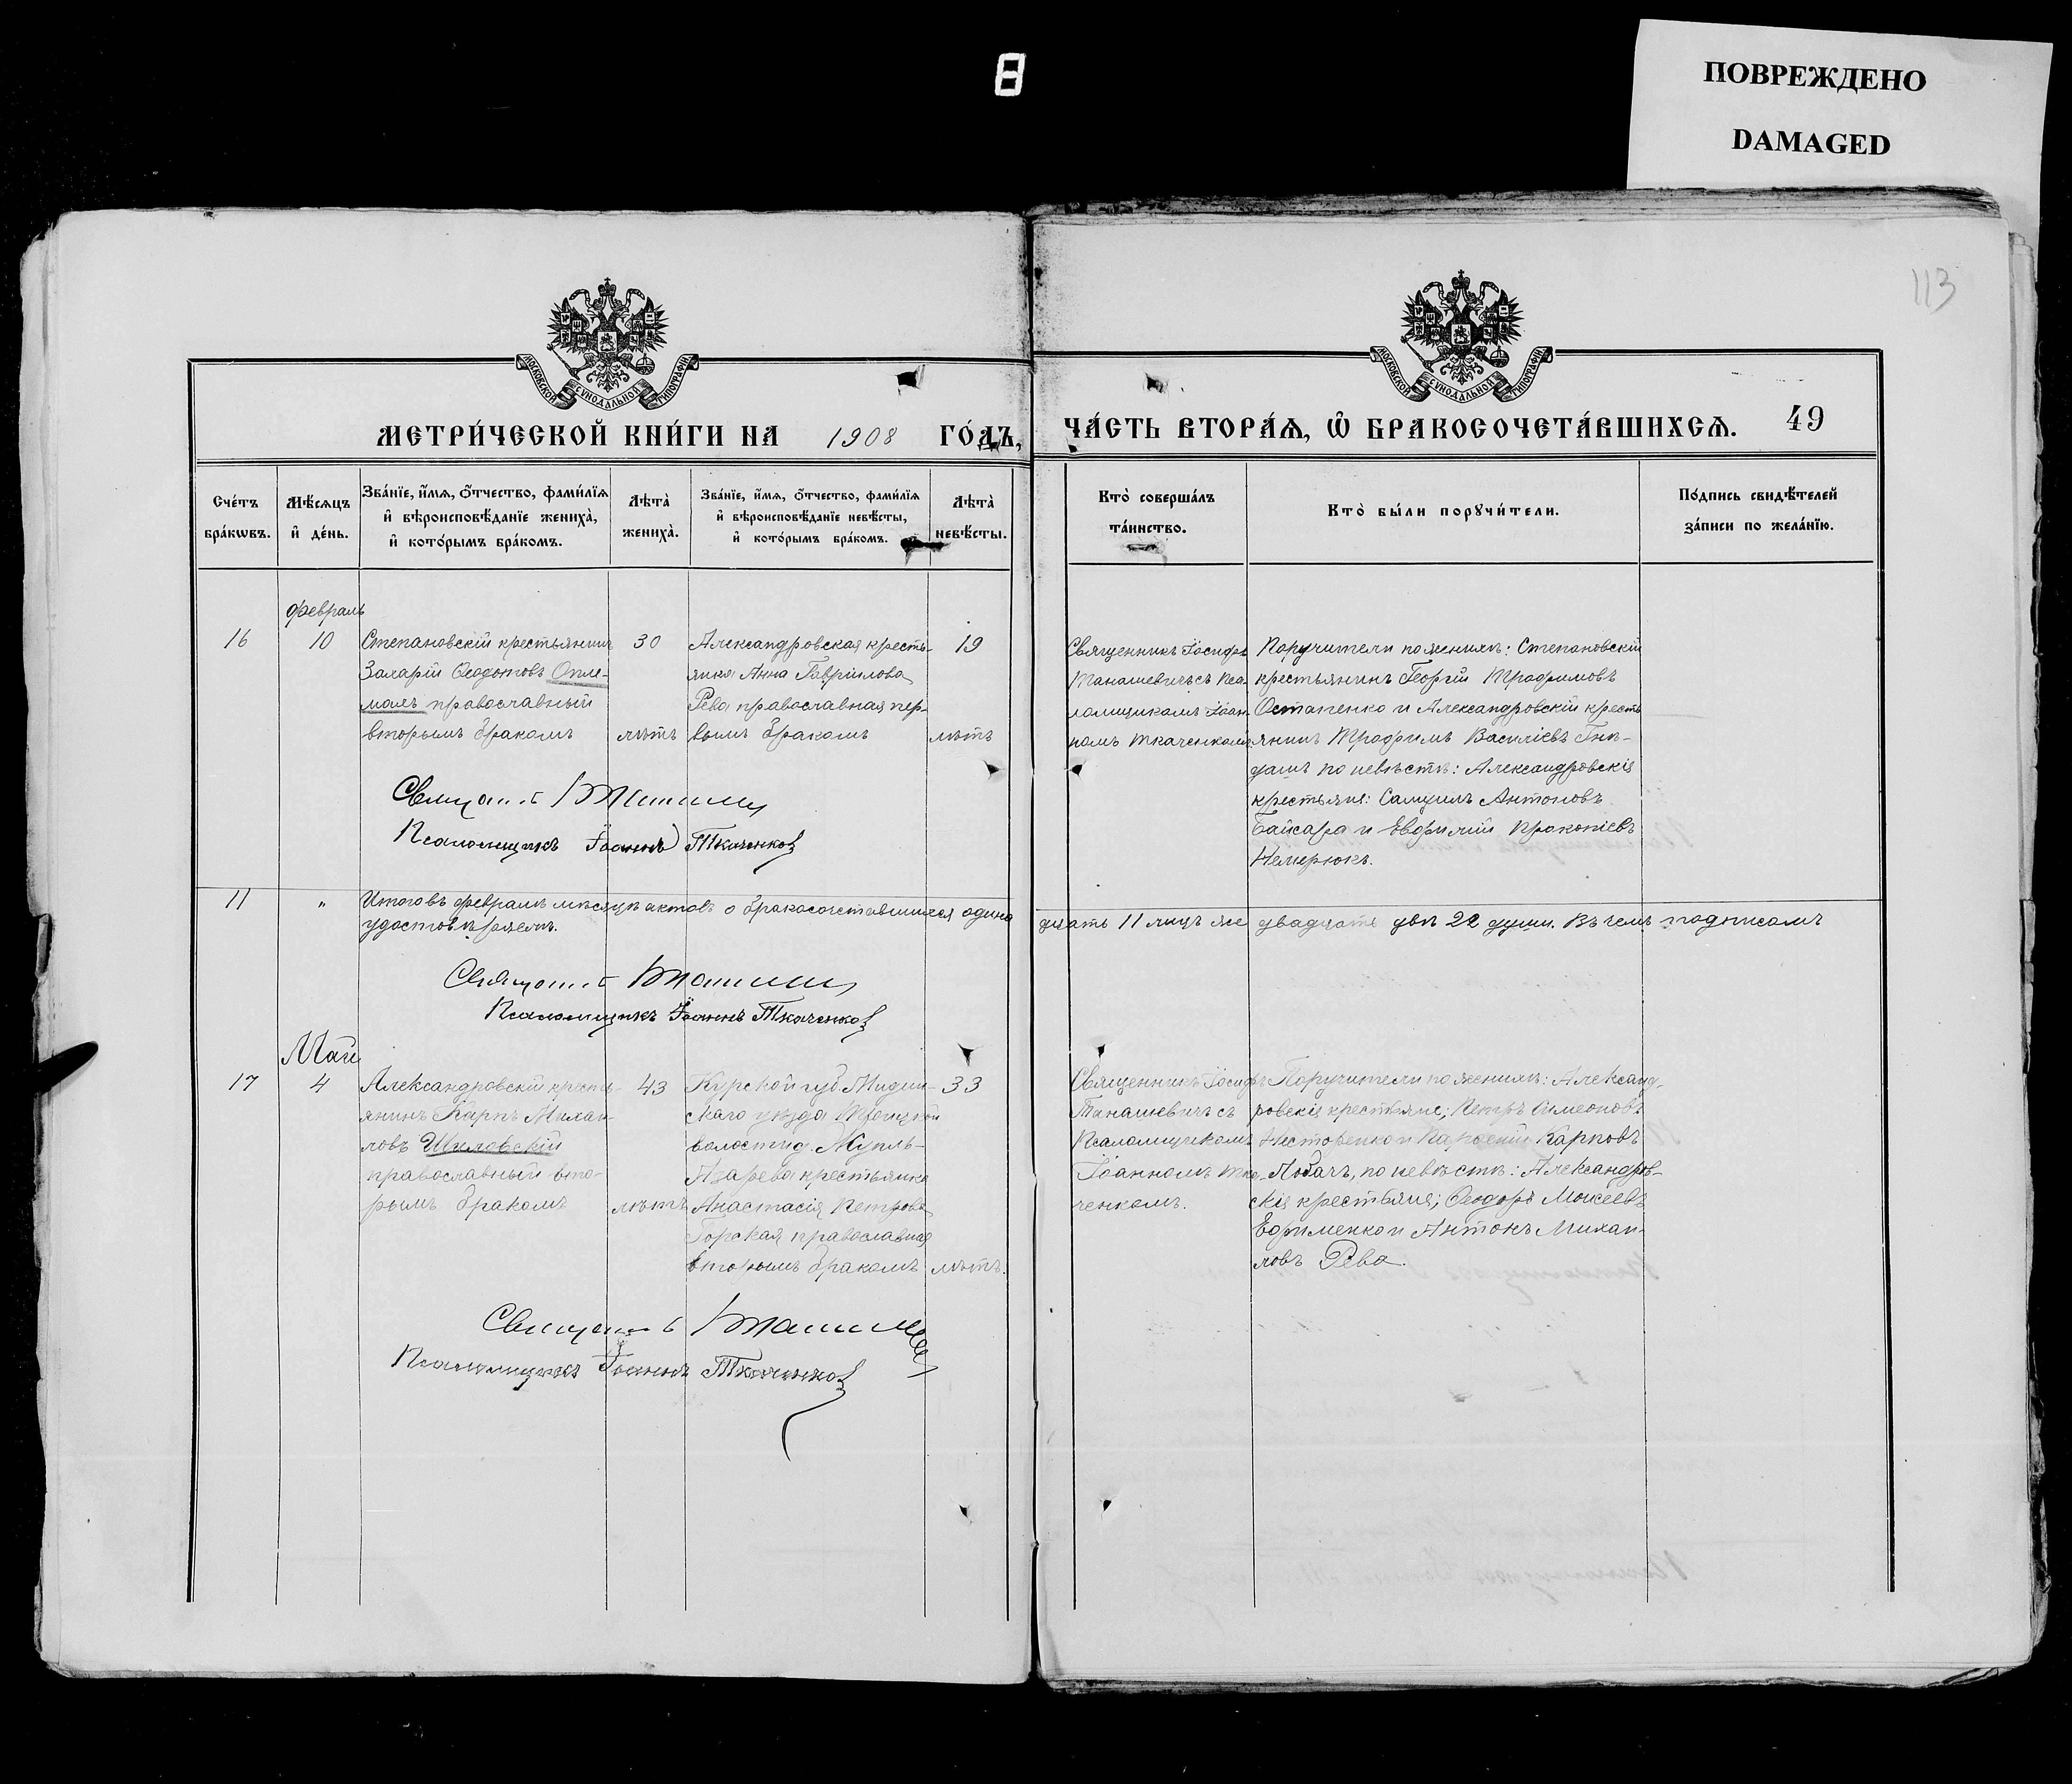 ПОВРЕЖДЕНО
DAMAGED
113
МОСКОВСКОЙ СѴНОДАЛЬНОЙ ТИПОГРАФІИ
МОСКОВСКОЙ СѴНОДАЛЬНОЙ ТИПОГРАФІИ
МЕТРИ́ЧЕСКОЙ КНИ́ГИ НА 1908 ГО́ДЪ,
ЧА́СТЬ ВТОРА́Ѧ, Ѽ БРАКОСОЧЕТА́ВШИХСѦ. 49
Сче́тъ
бра́кѡвъ.
Мѣ́сѧцъ
и҆ де́нь.
Зва́нїе, и҆́мѧ, ѻ҆́тчество, фами́лїѧ
и҆ вѣроисповѣ́данїе жениха̀,
и҆ кото́рымъ бра́комъ.
Лѣта̀
жениха̀.
Зва́нїе, и҆́мѧ, ѻ҆́тчество, фами́лїѧ
и҆ вѣроисповѣ́данїе невѣ́сты,
и҆ кото́рымъ бра́комъ.
Лѣта̀
невѣ́сты.
Кто̀ соверша́лъ
та́инство.
Кто̀ бы́ли порꙋчи́тели.
По́дпись свидѣ́телей
за́писи по жела́нїю.
Февраль
16
10
Степановскій крестьянинъ
Захарій Ѳеодотовъ
православный
вторымъ бракомъ
30
лѣтъ
Александровская кресть-
янка Анна Гавриілова
Рева православная пер-
вымъ бракомъ
19
лѣтъ
Священникъ Іосифъ
Танашевичъ съ Пса-
ломщикомъ Іоан-
номъ Ткаченкомъ
Поручители по женихѣ: Степановскій
крестьянинъ Георгій Трофимовъ
Остапенко и Александровскій кресть
янинъ Трофимъ Василіевъ
по невѣстѣ: Александровскіе
крестьяне: Самуилъ Антоновъ
Байсара и Евфимій Прокопіевъ
Немерюкъ.
Псаломщикъ Іоаннъ Ткаченко
11 "
Итого въ февралѣ мѣсяцѣ актовъ о бракосочетавшихся одина
дцать 11 лицъ же двадцать двѣ 22 души. Въ чемъ подписомъ
удостовѣряемъ.
Псаломщикъ Іоаннъ Ткаченко
Май
17
4
Александровскій кресть-
янинъ Карпъ Михаи
ловъ Шиловскій
православный вто-
рымъ бракомъ
43
лѣтъ
Курской губ.
скаго уѣзда Троицкой
волости д.
крестьянка
Анастасія Петрова
Горская православная
вторымъ бракомъ
33
лѣтъ.
Священникъ Іосифъ
Танашевичъ съ
Псаломщикомъ
Іоанномъ Тка-
ченкомъ.
Поручители по женихѣ: Александ-
ровскіе крестьяне; Петръ Симеоновъ
Несторенко и Карповъ
Лобачъ, по невѣстѣ: Александров-
скіе крестьяне; Ѳеодоръ Моисеевъ
Ефименко и Антонъ Михаи-
ловъ Рева.
Псаломщикъ Іоаннъ Ткаченко